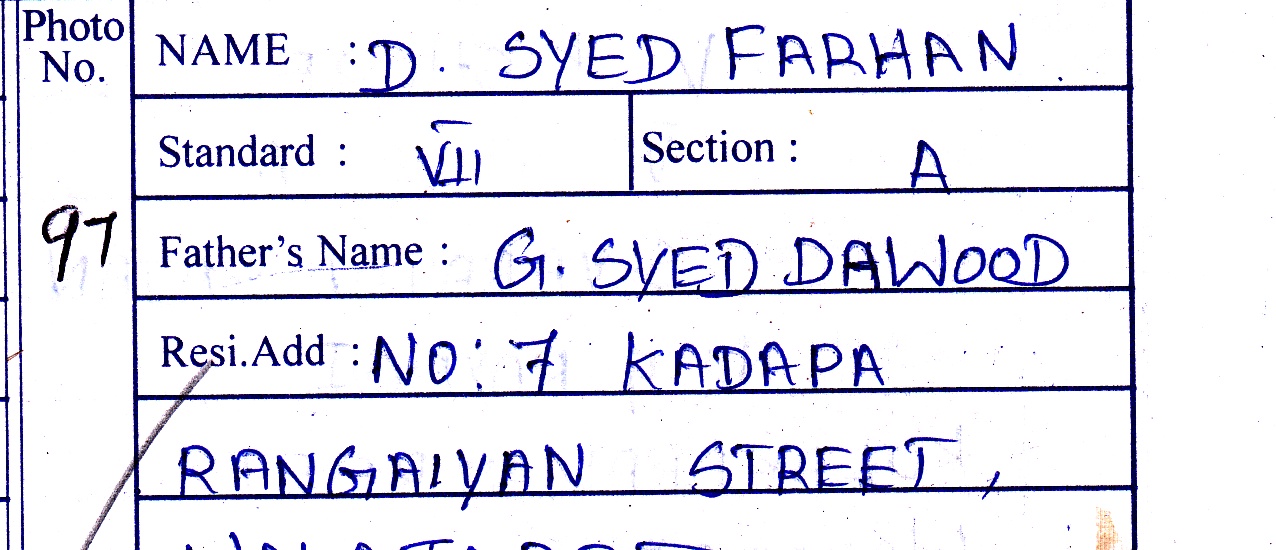 Photo No.
NAME : D. SYED FARHAN.
Standard : VII Section : A
97
Father's Name : G. SYED DAWOOD
Resi.Add : NO: 7 KADAPA
RANGAIYAN STREET,